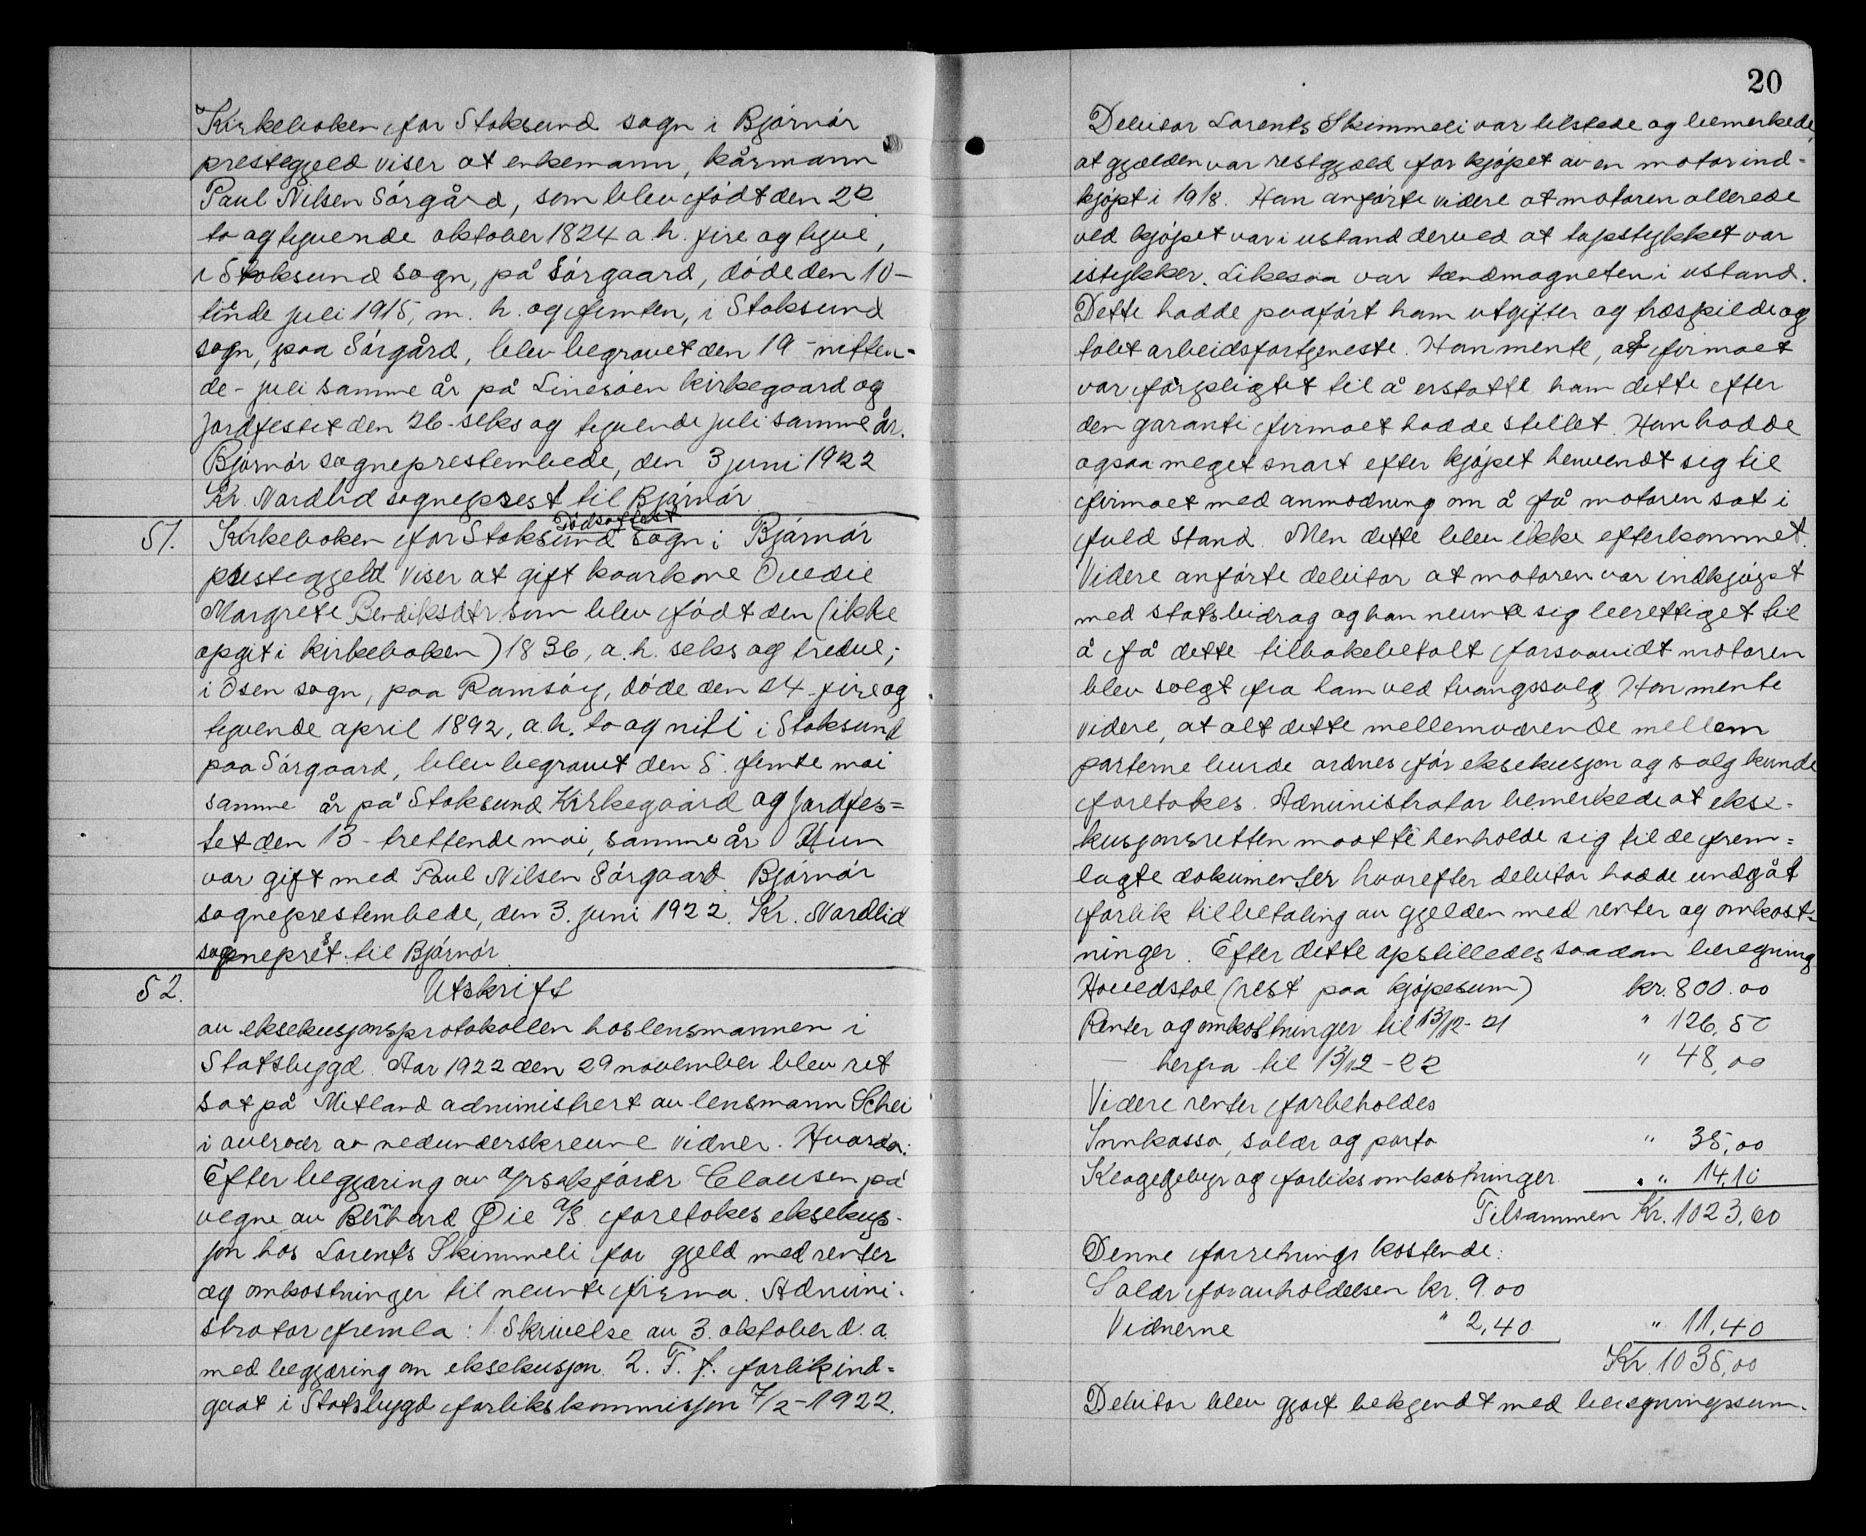 Kirkeboken for Stoksund sogn i Bjørnør
prestegjeld viser at enkemann, kårmann
Paul Nilsen Sørgård, som blev født den 22
to og tyvende oktober 1824 a.h. fire og tyve,
i Stoksund sogn, på Sørgaard, døde den 10-
tiende juli 1915, m. h. og femten, i Stoksund
sogn, paa Sørgård, blev begravet den 19 - nitten-
de - juli samme år på Linesøen kirkegaard og
jordfestet den 26 - seks og tyvende juli samme år.
Bjørnør sogneprestembede, den 3 juni 1922
Kr. Nordlid sogneprest til Bjørnør
Dødsattest
51. Kirkeboken for Stoksund sogn i Bjørnør
prestegjeld viser at gift kaarkone Ovedie
Margrete Bendiksdtr som blev født den (ikke
opgit i kirkeboken) 1836, a.h. seks og tredve,
i Osen sogn, paa Ramsøy, døde den 24 - fire og
tyvende april 1892, a.h. to og niti i Stoksund
paa Sørgaard, blev begravet den 5. femte mai
samme år på Stoksund Kirkegaard og jordfes=
tet den 13 - trettende mai, samme år Hun
var gift med Paul Nilsen Sørgaard. Bjørnør
sogneprestembede, den 3. juni 1922. Kr. Nordlid
sogneprest til Bjørnør.
52. Utskrift
av eksekusjonsprotokollen hos lensmannen i
Statsbygd. Aar 1922 den 29 november blev ret
sat på Metland administrert av lensmann Schei
i overvær av nedunderskrevne vidner. Hvorda:
Efter begjæring av o/rsakfører Clausen på
vegne av Bernhard Øie a/s. foretokes eksekus-
jon hos Lorents Skimmeli for gjeld med renter
og omkostninger til nevnte firma. Admini-
strator fremla: 1. Skrivelse av 3. oktober d. a.
med begjæring om eksekusjon 2. T. f. forlik ind-
gaat i Statsbygd forlikskommisjon 7/2 - 1922.
20
Debitor Lorents Skimmeli var tilstede og bemerkede,
at gjælden var restgjæld for kjøpet av en motor ind-
kjøpt i 1918. Han anførte videre at motoren allerede
ved kjøpet var i ustand derved at topstykket var
istykker. Likesaa var tændmagneten i ustand.
Dette hadde paaført ham utgifter og tidsspilde og
tabt arbeidsfortjeneste. Han mente, at firmaet
var forpligtet til å erstatte ham dette efter
den garanti firmaet hadde stillet. Han hadde
ogsaa meget snart efter kjøpet henvendt sig til
firmaet med anmodning om å få motoren sat i
fuld stand. Men dette blev ikke efterkommet.
Videre anførte debitor at motoren var indkjøpt
med statsbidrag og han nevnte sig berettiget til
å få dette tilbakebetalt forsaavidt motoren
blev solgt fra ham ved tvangssalg. Han mente
videre, at alt dette mellemværende mellem
parterne burde ordnes før eksekusjon og salg kunde
foretakes. Administrator bemerkede at ekse-
kusjonsretten maatte henholde sig til de frem=
lagte dokumenter hvorefter debitor hadde undgåt
forlik til betaling av gjelden med renter og omkost-
ninger. Efter dette opstilledes saadan beregning
Hovedstol (rest paa kjøpesum) kr. 800.00
Renter og omkostninger til 13/12 - 21 " 126,50
— herfra til 13/12 - 22 " 48,00
Videre renter forbeholdes
Innkasso, salær og porto " 35,00
Klagegebyr og forliksomkostninger " 14,10
Tilsammen Kr. 1023,60
Denne forretnings kostende:
Salær for avholdelsen kr. 9.00
Vidnerne " 2,40 " 11,40
Kr. 1035,00
Debitor blev gjort bekjendt med beregningssum-